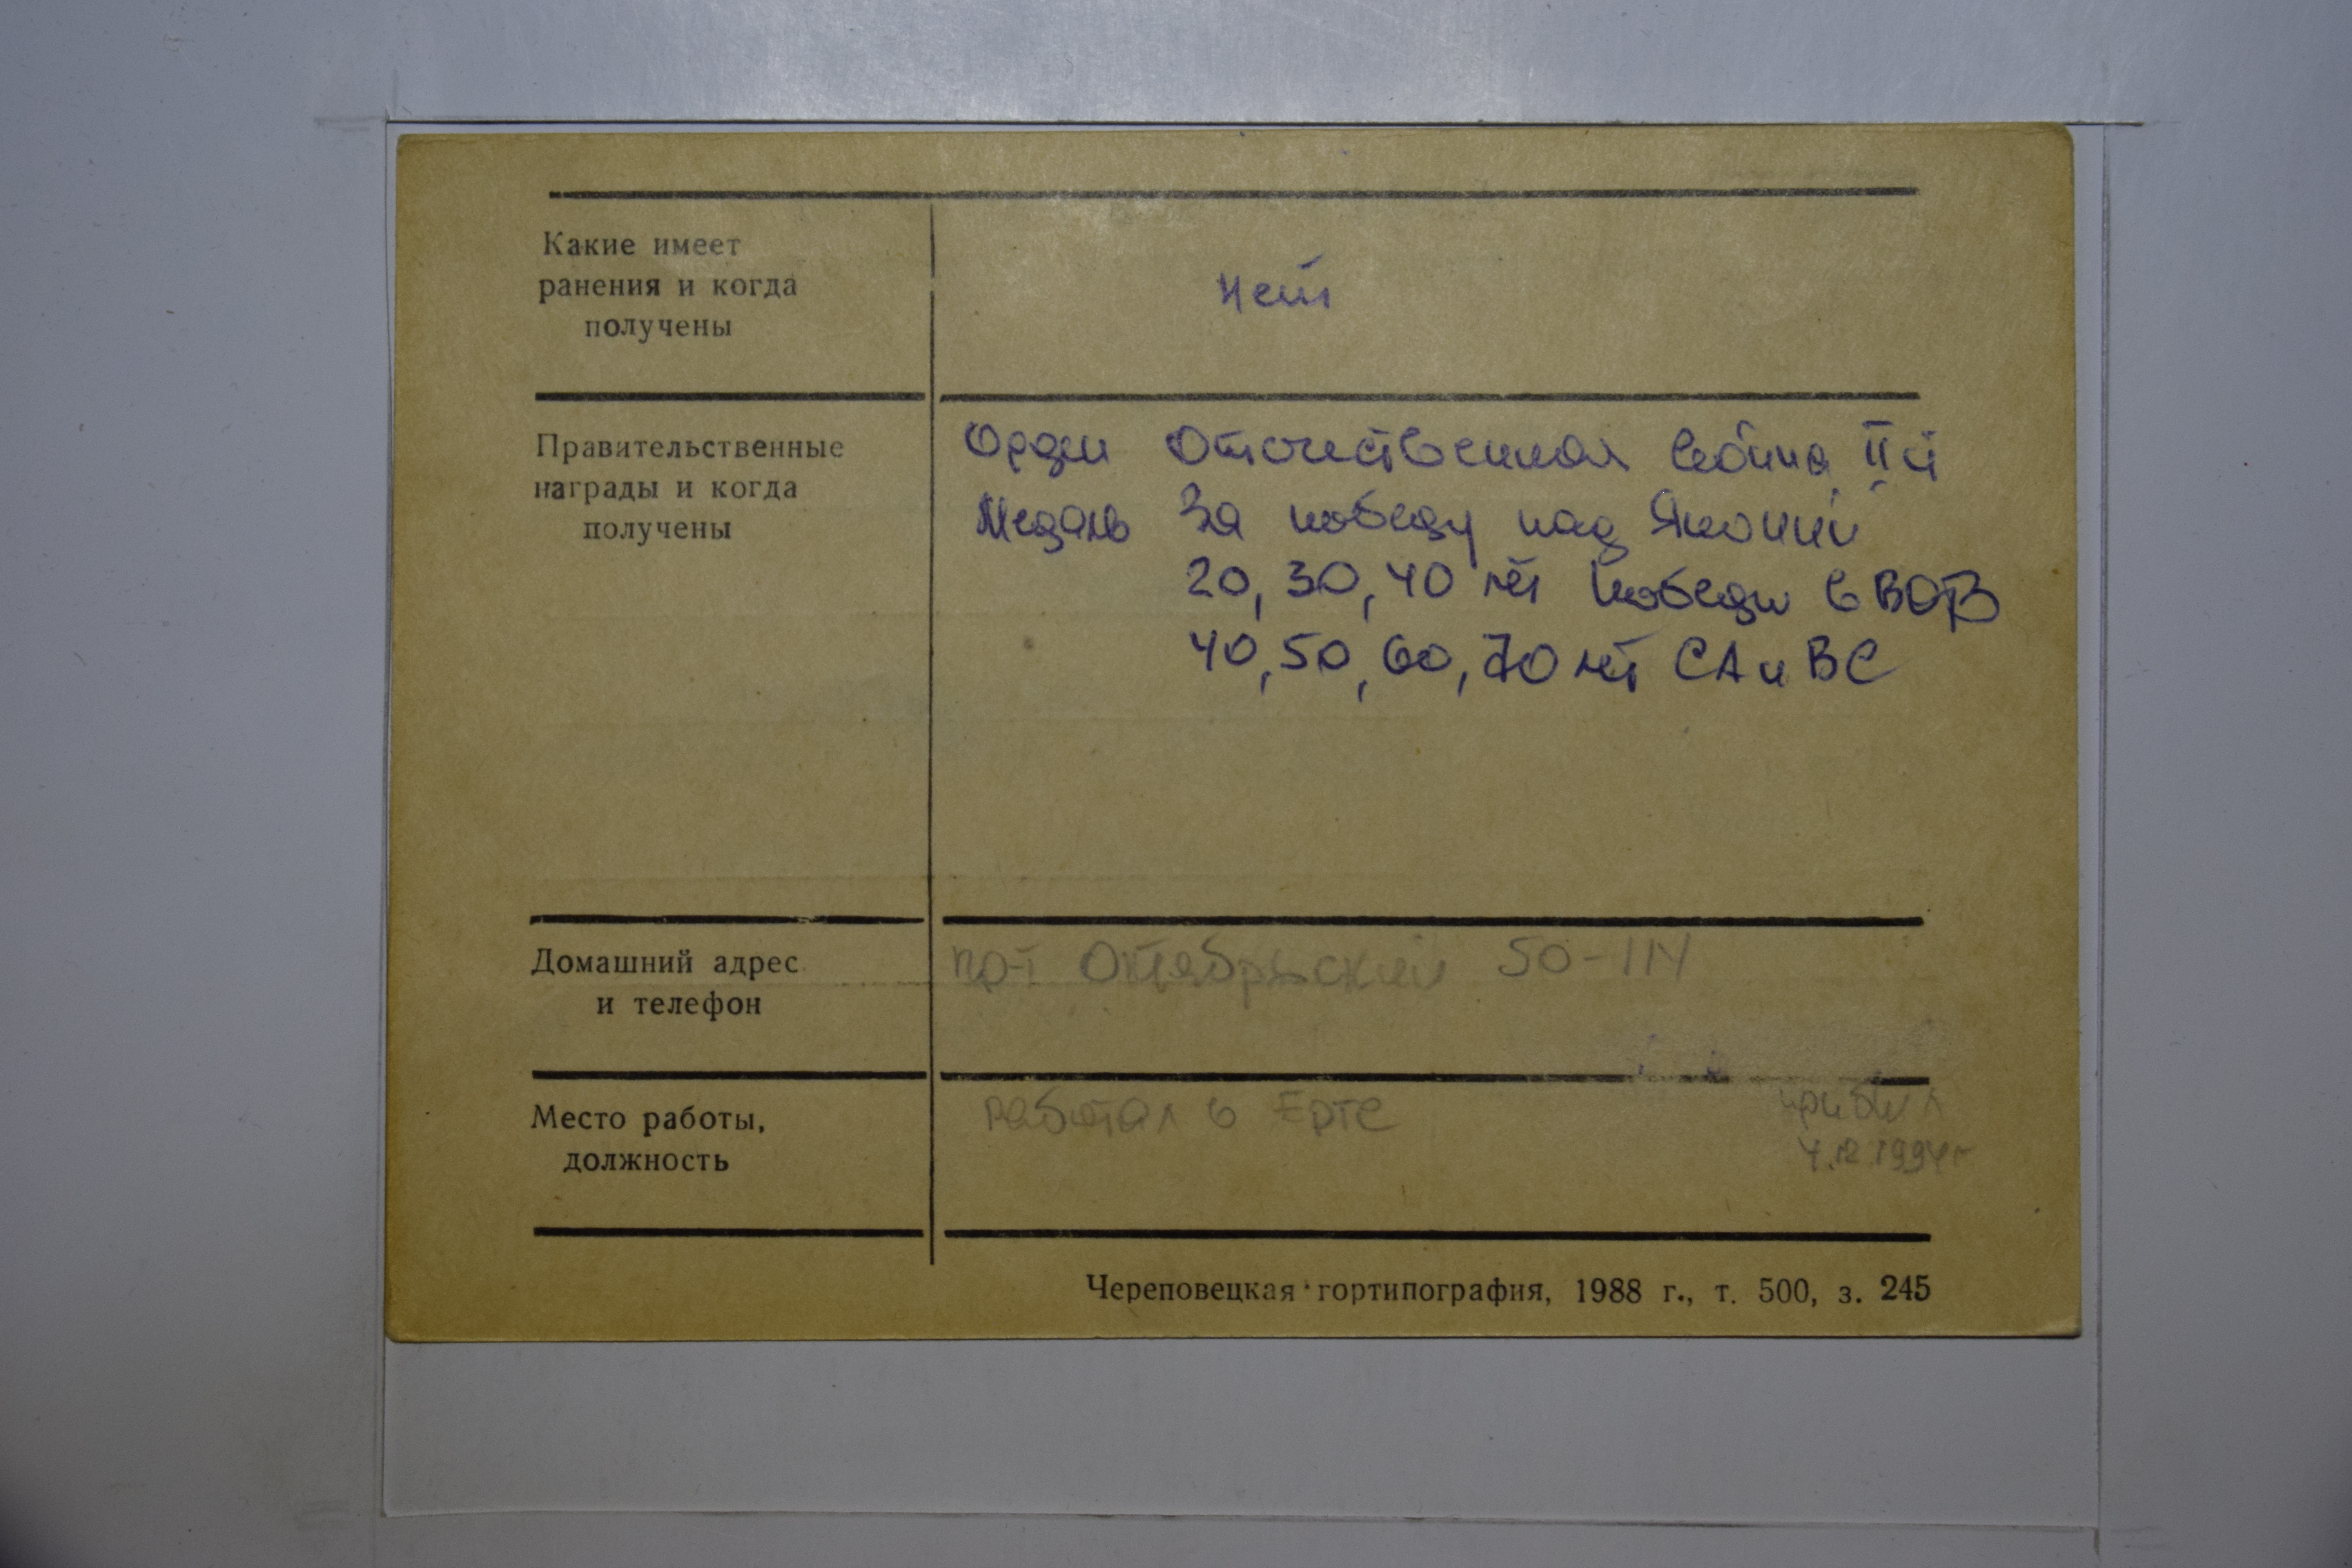 Какие имеет
ранения и когда
получены
нет
Правительственные
награды и когда
получены
Орден Отечественная война II ст
Медаль За победу над Японией
20, 30, 40 лет победы в ВОВ
40, 50, 60, 70 лет СА и ВС
Домашний адрес
и телефон
пр-т Октябрьский 50-114
Место работы,
должность
работал в Ерте
прибыл
4.12.1994г
Череповецкая гортипография, 1988 г., т. 500, з. 245